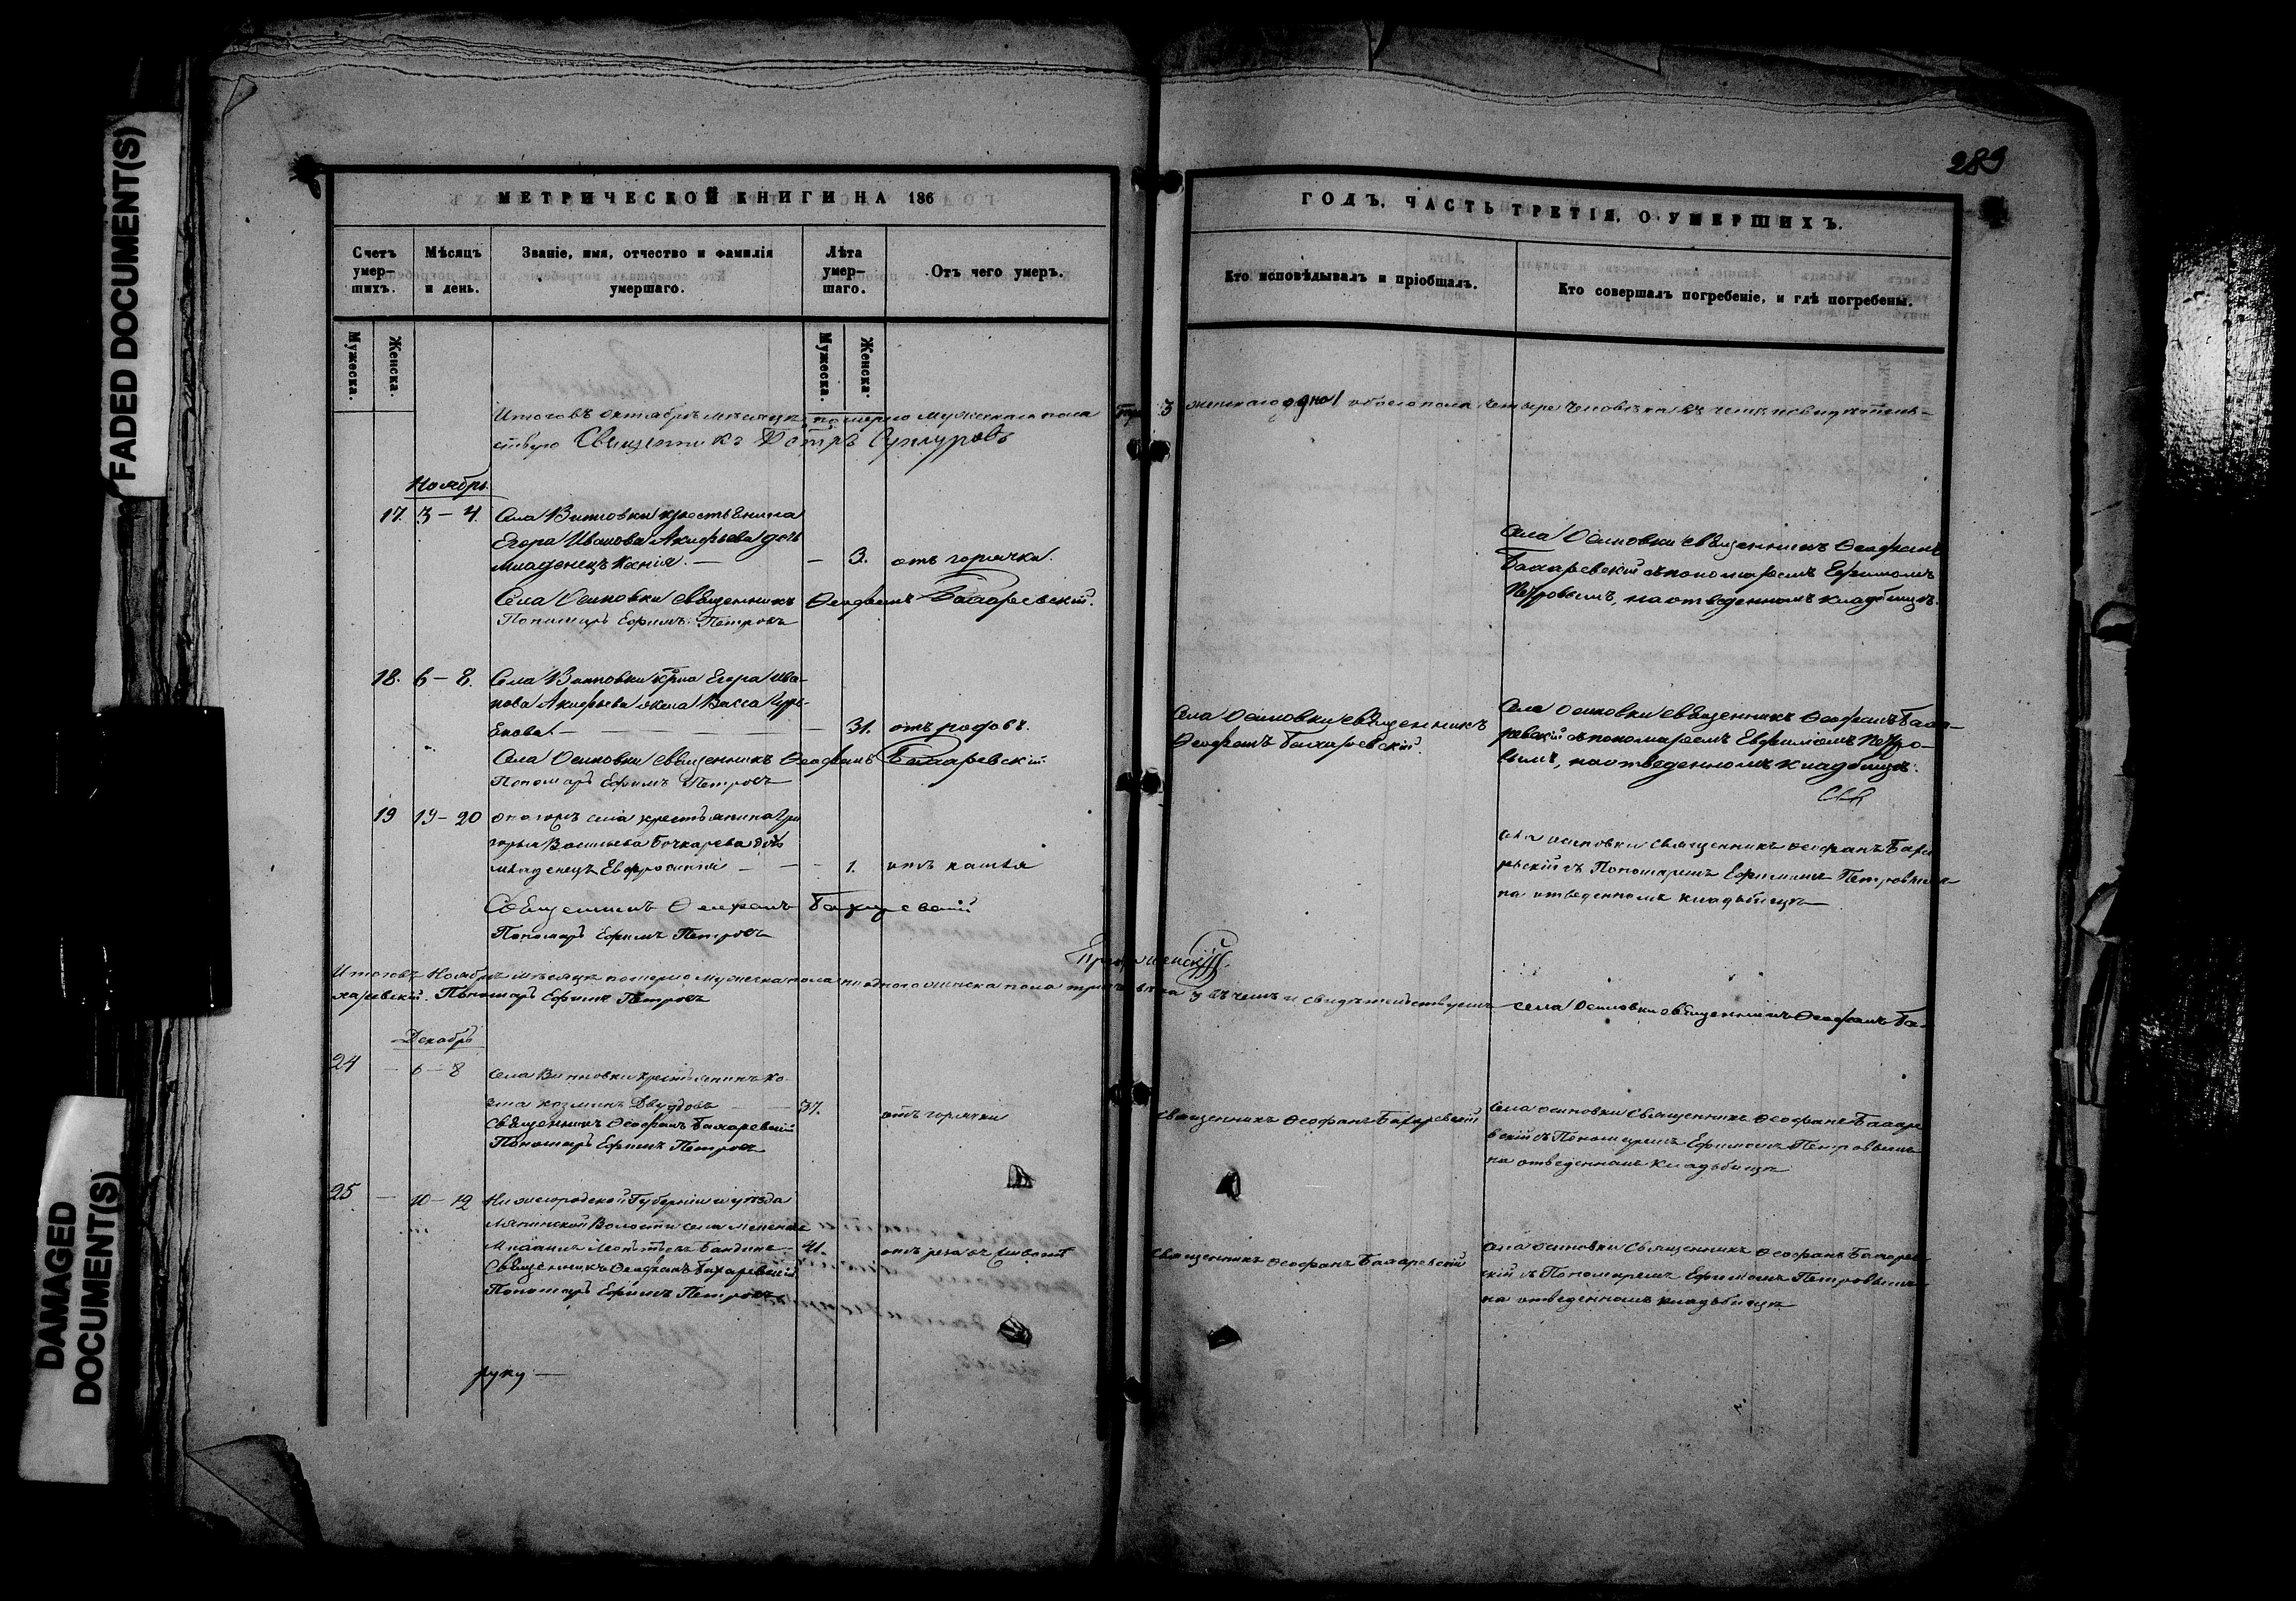 FADED DOCUMENT(S)
DAMAGED
DOCUMENT(S)
289
МЕТРИЧЕСКОЙ КНИГИ НА 186
Счетъ умер-шихъ.
Мѣсяцъ и день.
Званіе, имя, отчество и фамилія умершаго.
Лѣта умер-шаго.
Отъ чего умеръ.
Мужеска.
Женска.
Мужеска.
Женска.
Итого въ октябрѣ мѣсяцѣ померло мужескаго пола
Священникъ Петръ
Ноябрь
17. 3 – 4. Села Винновки крестьянина
Егора Иванова Акифьева дочь
младенецъ Ксенія. — – 3. отъ горячки.
Села Осиновки священникъ Ѳеофанъ Бахаревскій.
Пономарь Ефимъ Петровъ
18. 6 – 8. Села Винновки кр-на Егора Ива-
нова Акифьева жена Васса Гурь-
енова — 31. отъ родовъ.
Села Осиновки священникъ Ѳеофанъ Бахаревскій
Пономарь Ефимъ Петровъ
19 19 – 20 онагожъ села крестьянина Гри
горья Васильева Бочкарева дочь
младенецъ Евфросинія — 1. отъ кашля
Священникъ Ѳеофанъ Бахаревскій
Пономарь Ефимъ Петровъ
Итого въ Ноябрѣ мѣсяцѣ померло мужеска пола ни одного женска пола три
харевскій. Пономарь Ефимъ Петровъ
Декабрь
24 – 6 – 8 Села Винновки крестьянинъ Ко-
зма Козминъ — 37. отъ горячки
Священникъ Ѳеофанъ Бахаревскій
Пономарь Ефимъ Петровъ
25 – 10 – 12 Нижегородской Губерніи и уѣзда
Волости села
41. отъ
Священникъ Ѳеофанъ Бахаревскій
Пономарь Ефимъ Петровъ
руку —
ГОДЪ, ЧАСТЬ ТРЕТІЯ, О УМЕРШИХЪ.
Кто исповѣдывалъ и пріобщалъ.
Кто совершалъ погребеніе, и гдѣ погребены.
3 женскаго одно 1 обоего пола четыре человѣка въ чемъ и свидѣтель-
Села Осиновки священникъ Ѳеофанъ
Бахаревскій съ пономаремъ Ефимомъ
Петровымъ, на отведенномъ кладбищѣ.
Села Осиновки священникъ
Ѳеофанъ Бахаревскій.
Села Осиновки священникъ Ѳеофанъ Баха-
ревскій съ пономаремъ Евфиміемъ Петро-
вымъ, на отведенномъ кладбищѣ.
Села Осиновки священникъ Ѳеофанъ Баха
ревскій съ Пономаремъ Ефимомъ Петровымъ
на отведенномъ кладбищѣ
въ чемъ и свидѣтельствуемъ села Осиновки священникъ Ѳеофанъ Ба-
Священникъ Ѳеофанъ Бахаревскій
Села Осиновки Священникъ Ѳеофанъ Бахаре
вскій съ Пономаремъ Ефимомъ Петровымъ
на отведенномъ кладбищѣ
Священникъ Ѳеофанъ Бахаревскій
Села Осиновки Священникъ Ѳеофанъ Бахарев
скій съ Пономаремъ Ефимомъ Петровымъ
на отведенномъ кладбищѣ